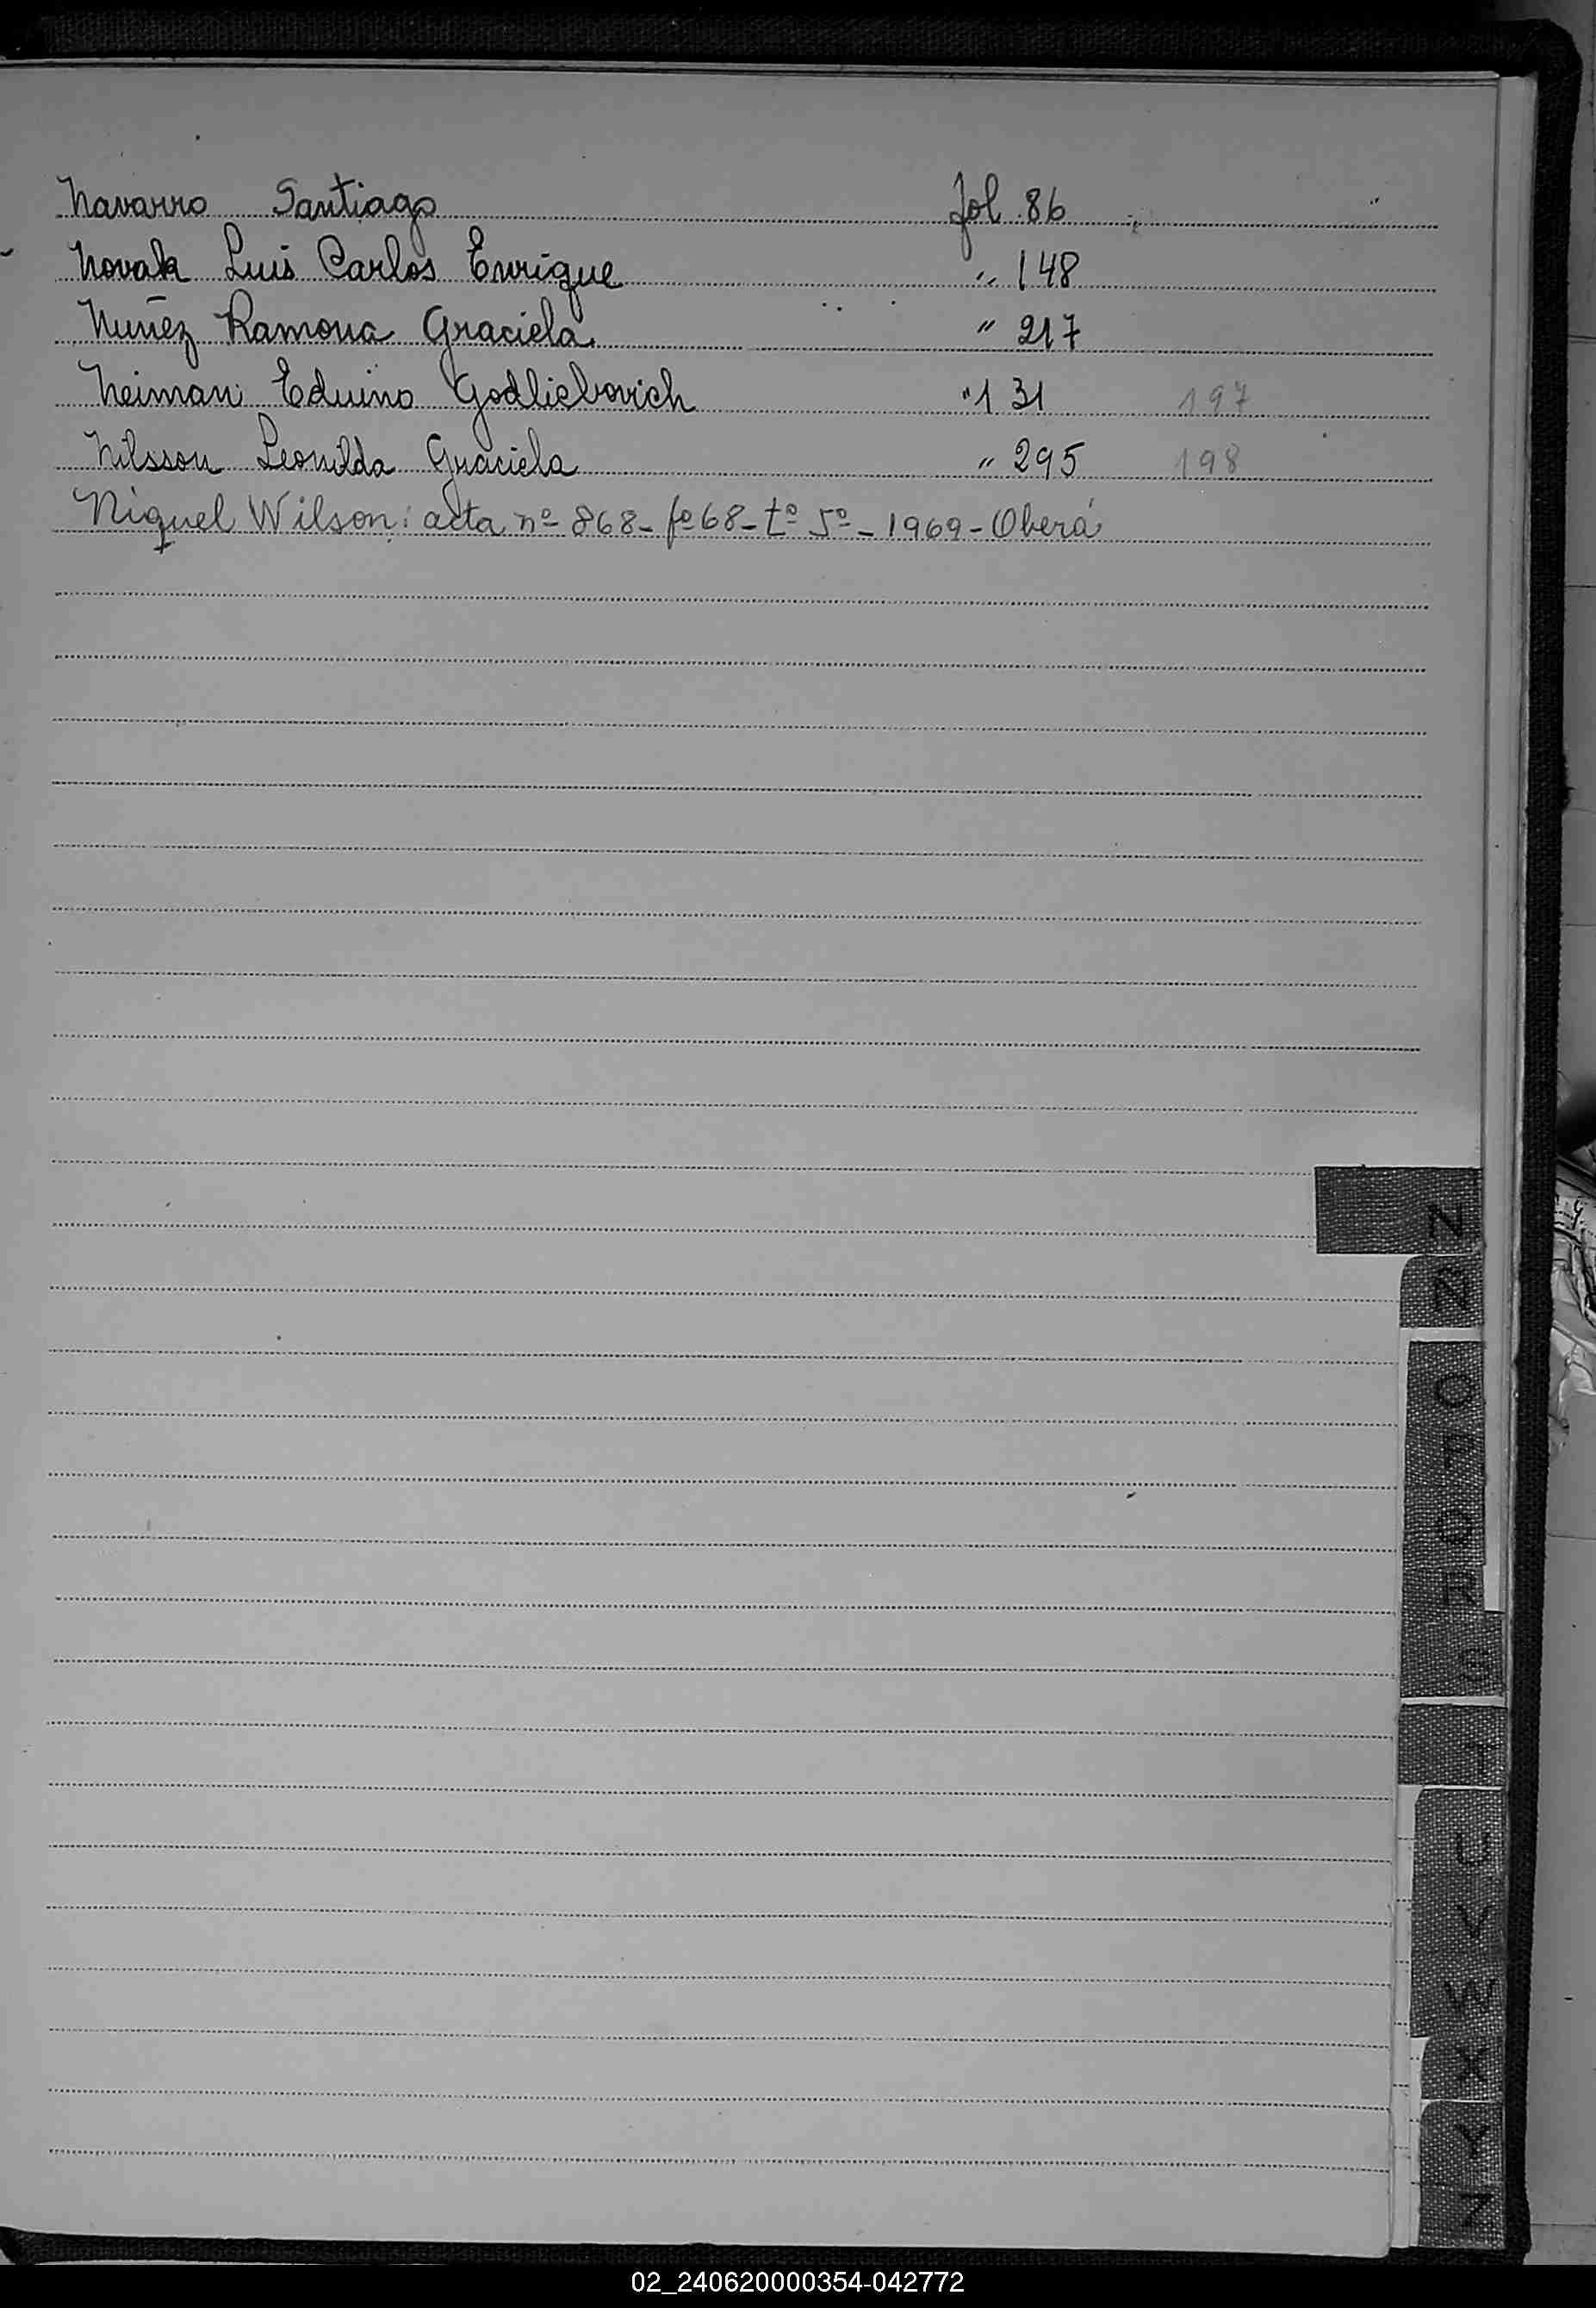 Navarro Santiago Fol 86
Novak Luis Carlos Enrique " 148
Nuñez Ramona Graciela " 217
Neiman Eduino Godliebovich " 131 197
Nilsson Leonilda Graciela " 295 198
Niquel Wilson: acta nº 868- fº 68- tº 5º - 1969- Oberá
N
Ñ
O
P
Q
R
S
T
U
V
W
X
Y
Z
02_240620000354-042772